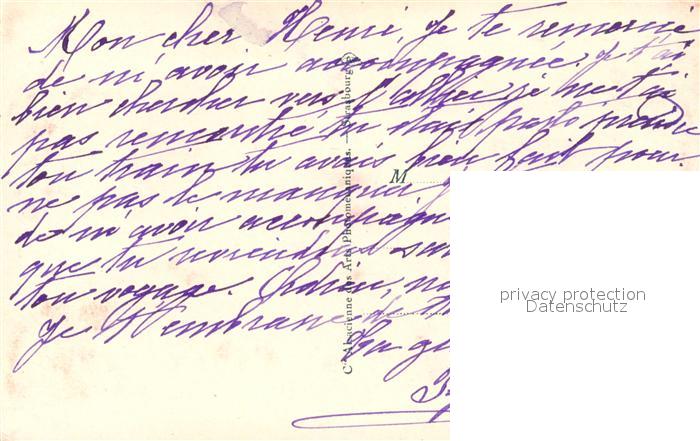 Mon cher Henri, je te remercie
de m'avoir accompagnée. Je t'ai
bien chercher vers l'allée je ne t'ai
pas rencontré tu étais parti prendre
ton train tu avais bien fait pour
ne pas le manquer
de m'avoir accompagn
que tu reviendras
ton voyage. Adieu,
Je t'embrasse
Ta
M
Cie Alsacienne des Arts Photomécaniques. — Strasbourg
privacy protection
Datenschutz